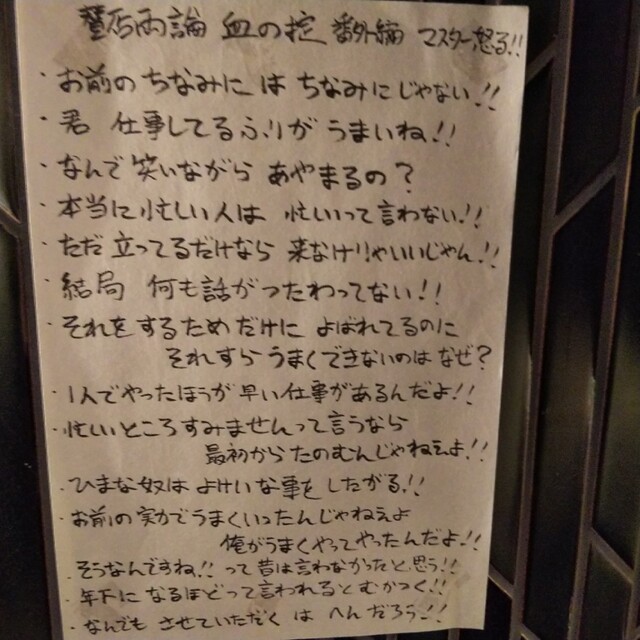 酋店雨論 血の掟 番外編 マスター怒る!!
・お前の ちなみに は ちなみにじゃない!!
・君 仕事してるふりが うまいね!!
・なんで 笑いながら あやまるの?
・本当に忙しい人は 忙しいって言わない!!
・ただ 立ってるだけなら 来なけりゃいいじゃん!!
・結局 何も話がつたわってない!!
・それをするためだけに よばれてるのに
それすら うまくできないのは なぜ?
・1人でやったほうが 早い仕事があるんだよ!!
・忙しいところすみませんって言うなら
最初からたのむんじゃねえよ!!
・ひまな奴は よけいな事をしたがる!!
・お前の実力でうまくいったんじゃねえよ
俺がうまくやってやったんだよ!!
・そうなんですね!! って昔は言わなかったと思う!!
・年下に なるほどって言われると むかつく!!
・なんでも させていただく は へんだろう!!